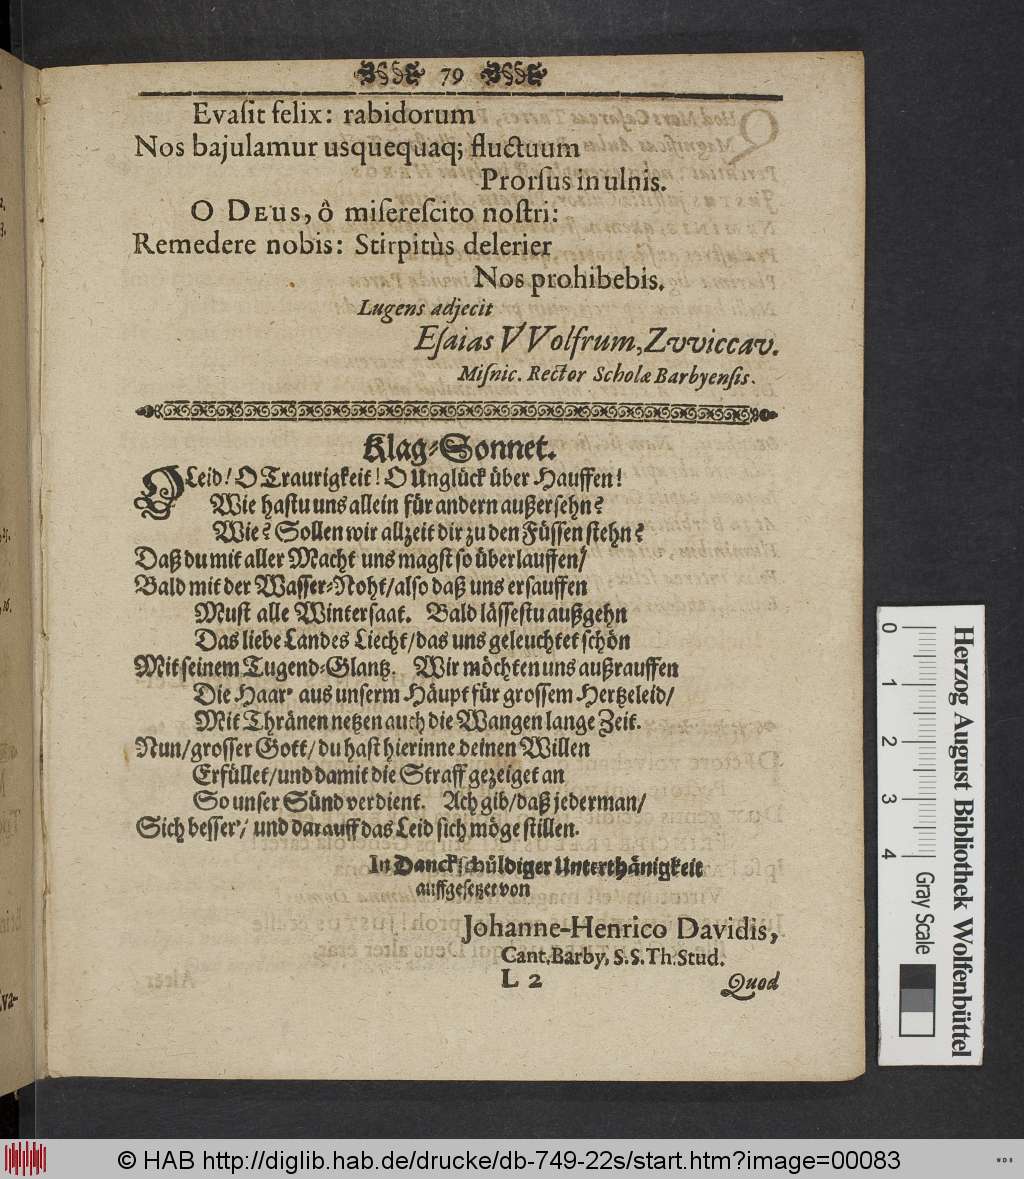 79
Evaſit felix: rabidorum
Nos bajulamur usquequaq; fluctuum
Prorſus in ulnis.
O DEUS, ô miſereſcito noſtri:
Remedere nobis: Stirpitùs delerier
Nos prohibebis.
Lugens adjecit
Eſaias VVolfrum, Zvviccav.
Miſnic. Rector Scholæ Barbyenſis.
Klag-Sonnet.
O Leid! O Traurigkeit! O Unglück über Hauffen!
Wie haſtu uns allein für andern außerſehn?
Wie? Sollen wir allzeit dir zu den Füſſen ſtehn?
Daß du mit aller Macht uns magſt ſo überlauffen/
Bald mit der Waſſer-Noht/alſo daß uns erſauffen
Muſt alle Winterſaat. Bald läſſeſtu außgehn
Das liebe Landes Liecht/das uns geleuchtet ſchön
Mit ſeinem Tugend-Glantz. Wir möchten uns außrauffen
Die Haar' aus unſerm Häupt für groſſem Hertzeleid/
Mit Thränen netzen auch die Wangen lange Zeit.
Nun/groſſer Gott/du haſt hierinne deinen Willen
Erfüllet/und damit die Straff gezeiget an
So unſer Sünd verdient. Ach gib/daß jederman/
Sich beſſer'/ und darauff das Leid ſich möge ſtillen.
In Danckſchüldiger Unterthänigkeit
auffgeſetzet von
Johanne-Henrico Davidis,
Cant. Barby, S. S. Th. Stud.
L 2 Quod
Alter
va-
0 1 2 3 4
Gray Scale
Herzog August Bibliothek Wolfenbüttel
© HAB http://diglib.hab.de/drucke/db-749-22s/start.htm?image=00083